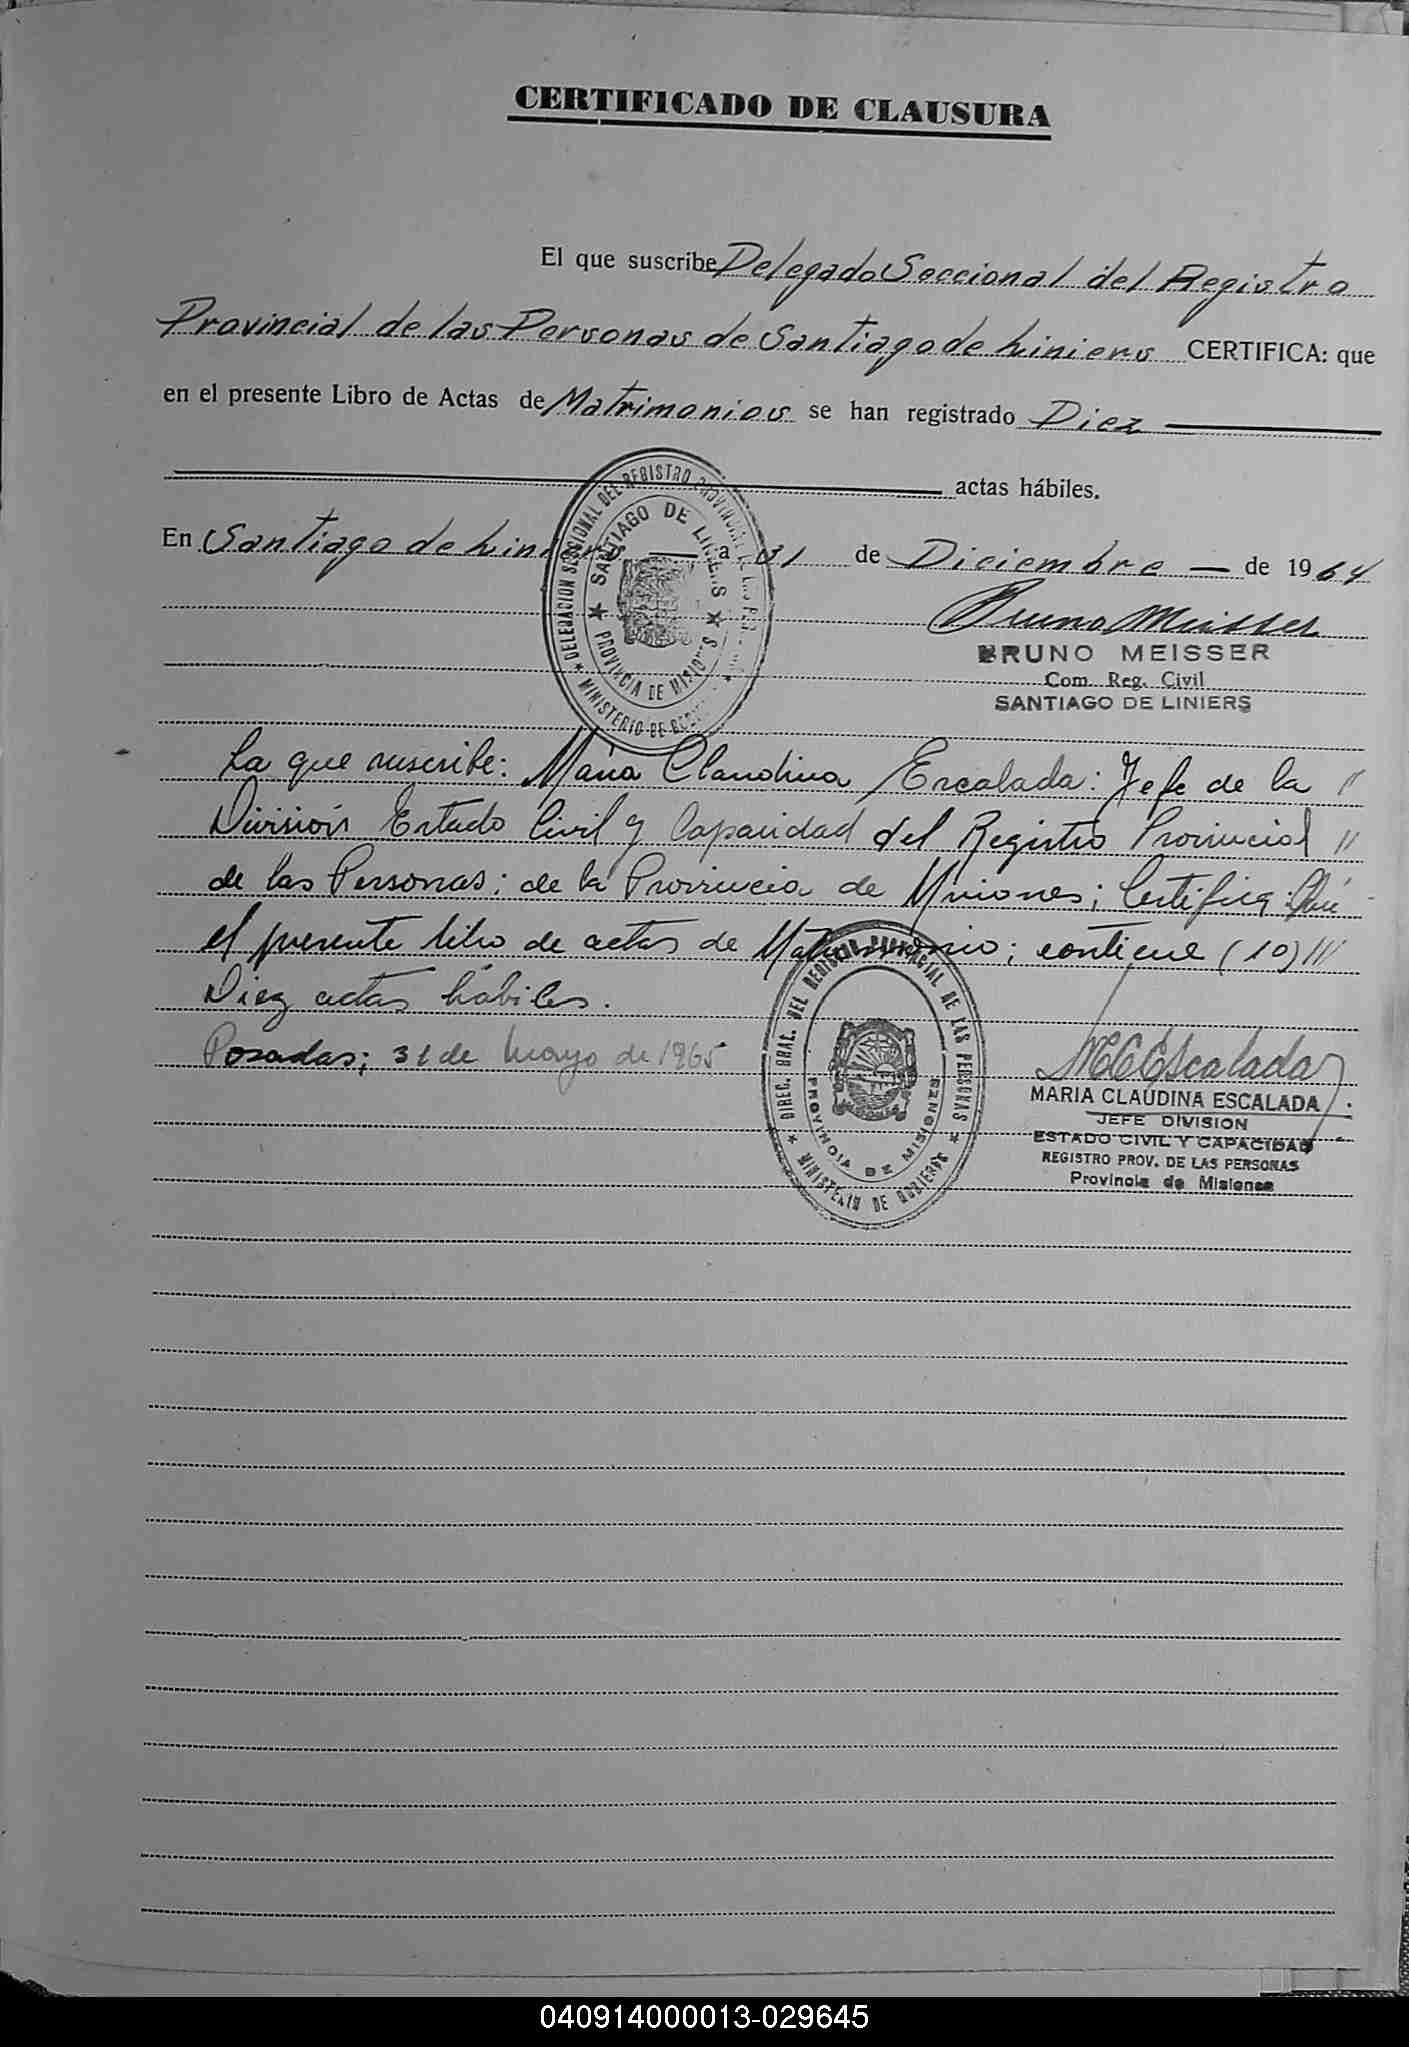 CERTIFICADO DE CLAUSURA
El que suscribe Delegado Seccional del Registro
Provincial de las Personas de Santiago de Liniers CERTIFICA: que
en el presente Libro de Actas de Matrimonios se han registrado Diez
actas hábiles.
En Santiago de Liniers a 31 de Diciembre de 1964
Bruno Meisser
BRUNO MEISSER
Com. Reg. Civil
SANTIAGO DE LINIERS
DELEGACION SECCIONAL DEL REGISTRO PROVINCIAL DE LAS PERSONAS
SANTIAGO DE LINIERS
PROVINCIA DE MISIONES
MINISTERIO DE
La que suscribe: María Claudina Escalada: Jefe de la "
División Estado Civil y Capacidad del Registro Provincial "
de las Personas; de la Provincia de Misiones; Certifica: Que
el presente libro de actas de Matrimonio; contiene (10) ///
Diez actas hábiles.
Posadas; 31 de Mayo de 1965
DIREC. GRAL. DEL REGISTRO PROVINCIAL DE LAS PERSONAS
PROVINCIA DE MISIONES
MINISTERIO DE GOBIERNO
MCEscalada
MARIA CLAUDINA ESCALADA
JEFE DIVISION
ESTADO CIVIL Y CAPACIDAD
REGISTRO PROV. DE LAS PERSONAS
Provincia de Misiones
040914000013-029645